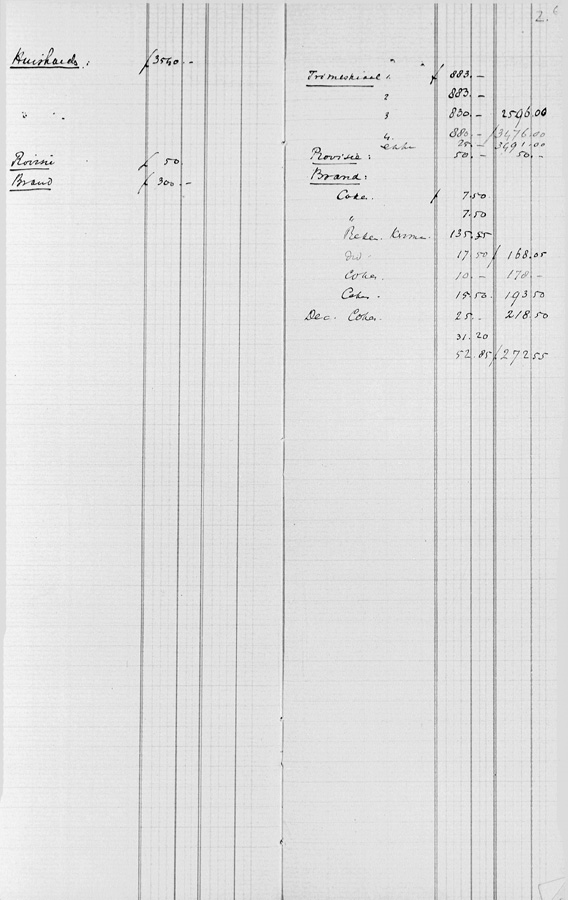 2.6
Huishoud: f 3540.-
" "
Provisie f 50
Brand f 300.-
" "
Trimestriaal 1. f 883.-
2 883.-
3 830.- 2596.00
4. 880.- f 3476.00
25.- 3491.00
Provisie: 50.- 50.-
Brand:
Cokes. f 7.50
" 7.50
135.55
17.50 f 168.05
Cokes. 10.- 178.-
Cokes. 15.50. 193.50
Dec. Cokes. 25.- 218.50
31.20
52.85 f 272.55